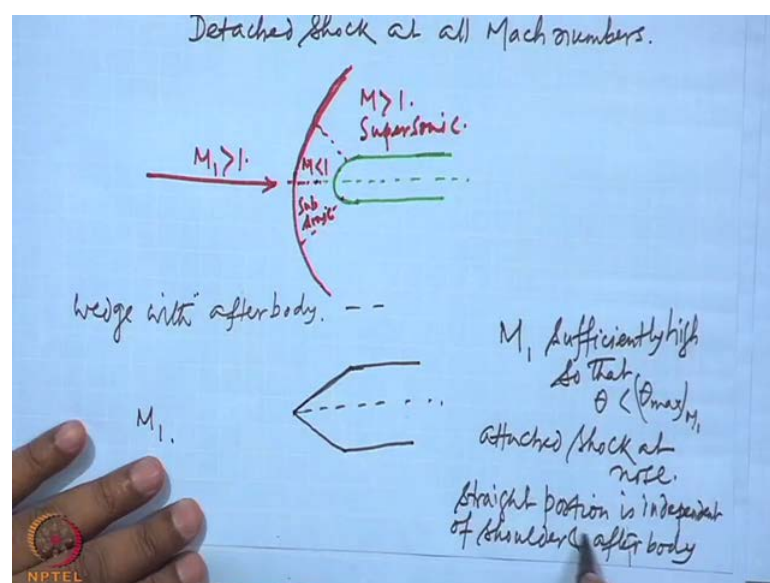 Detached Shock at all Mach numbers.
M > 1.
Supersonic.
M₁ > 1.
M < 1
Sub
sonic
Wedge with afterbody. --
M₁ Sufficiently high
so that
θ < (θmax)M₁
M₁.
attached shock at
nose.
Straight portion is independent
of shoulder & afterbody
NPTEL